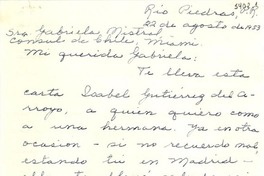 Río Piedras, P.R.
22 de agosto de 1953
Sra. Gabriela Mistral
Consul de Chile, Miami.
Mi querida Gabriela:
Te lleva esta
carta Isabel Gutiérrez del A-
rroyo, a quien quiero como
a una hermana. Ya en otra
ocasion - si no recuerdo mal,
estando tú en Madrid -